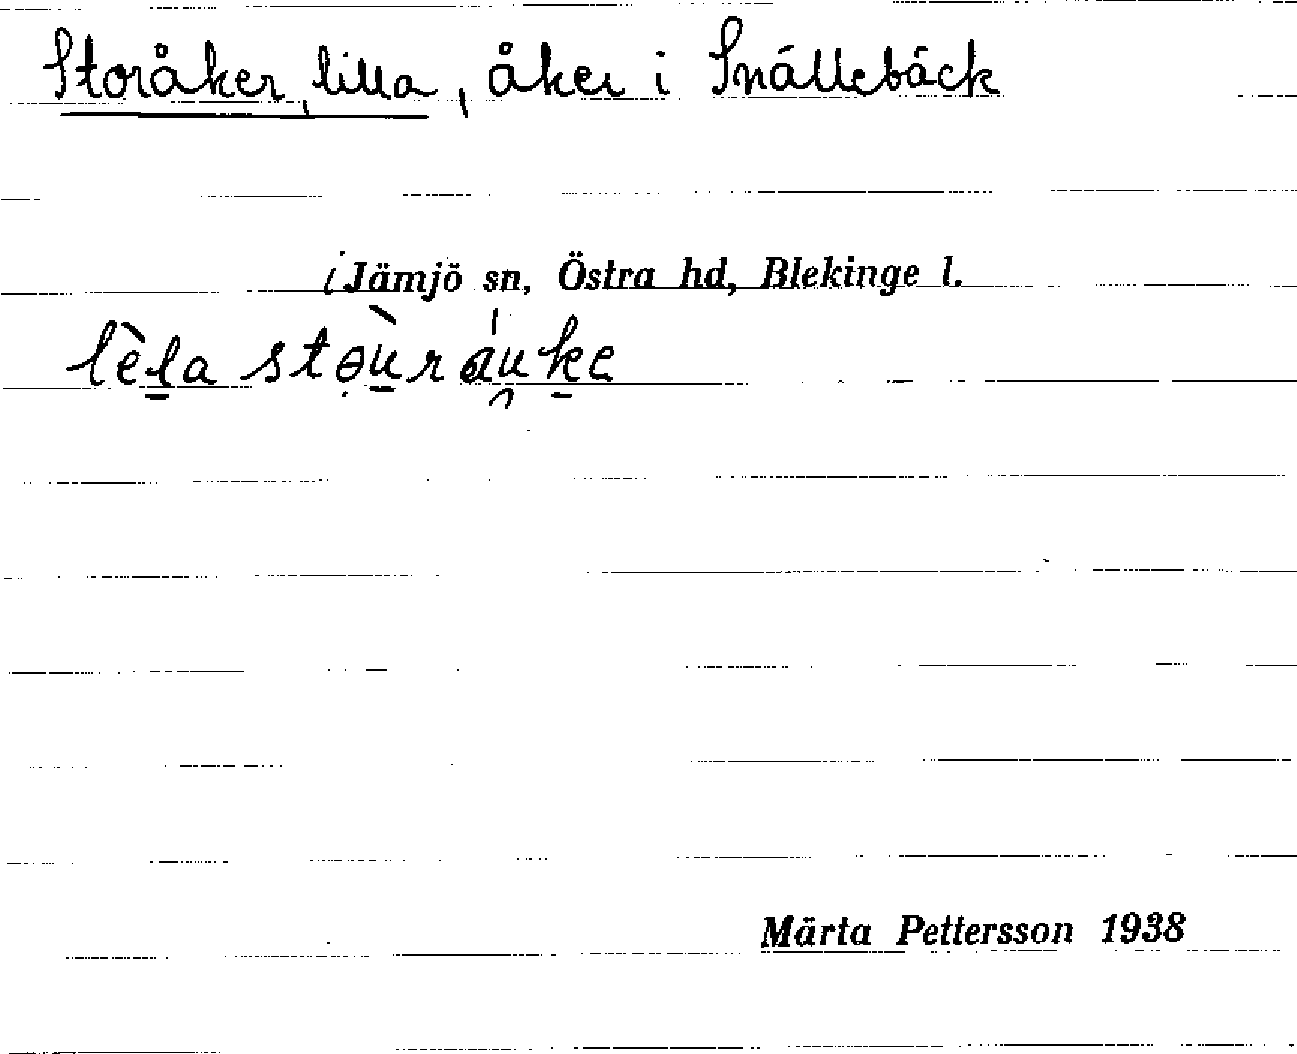 Storåker, lilla, åker i Snällebäck
i Jämjö sn, Östra hd, Blekinge l.
lèla stoùráuke
Märta Pettersson 1938